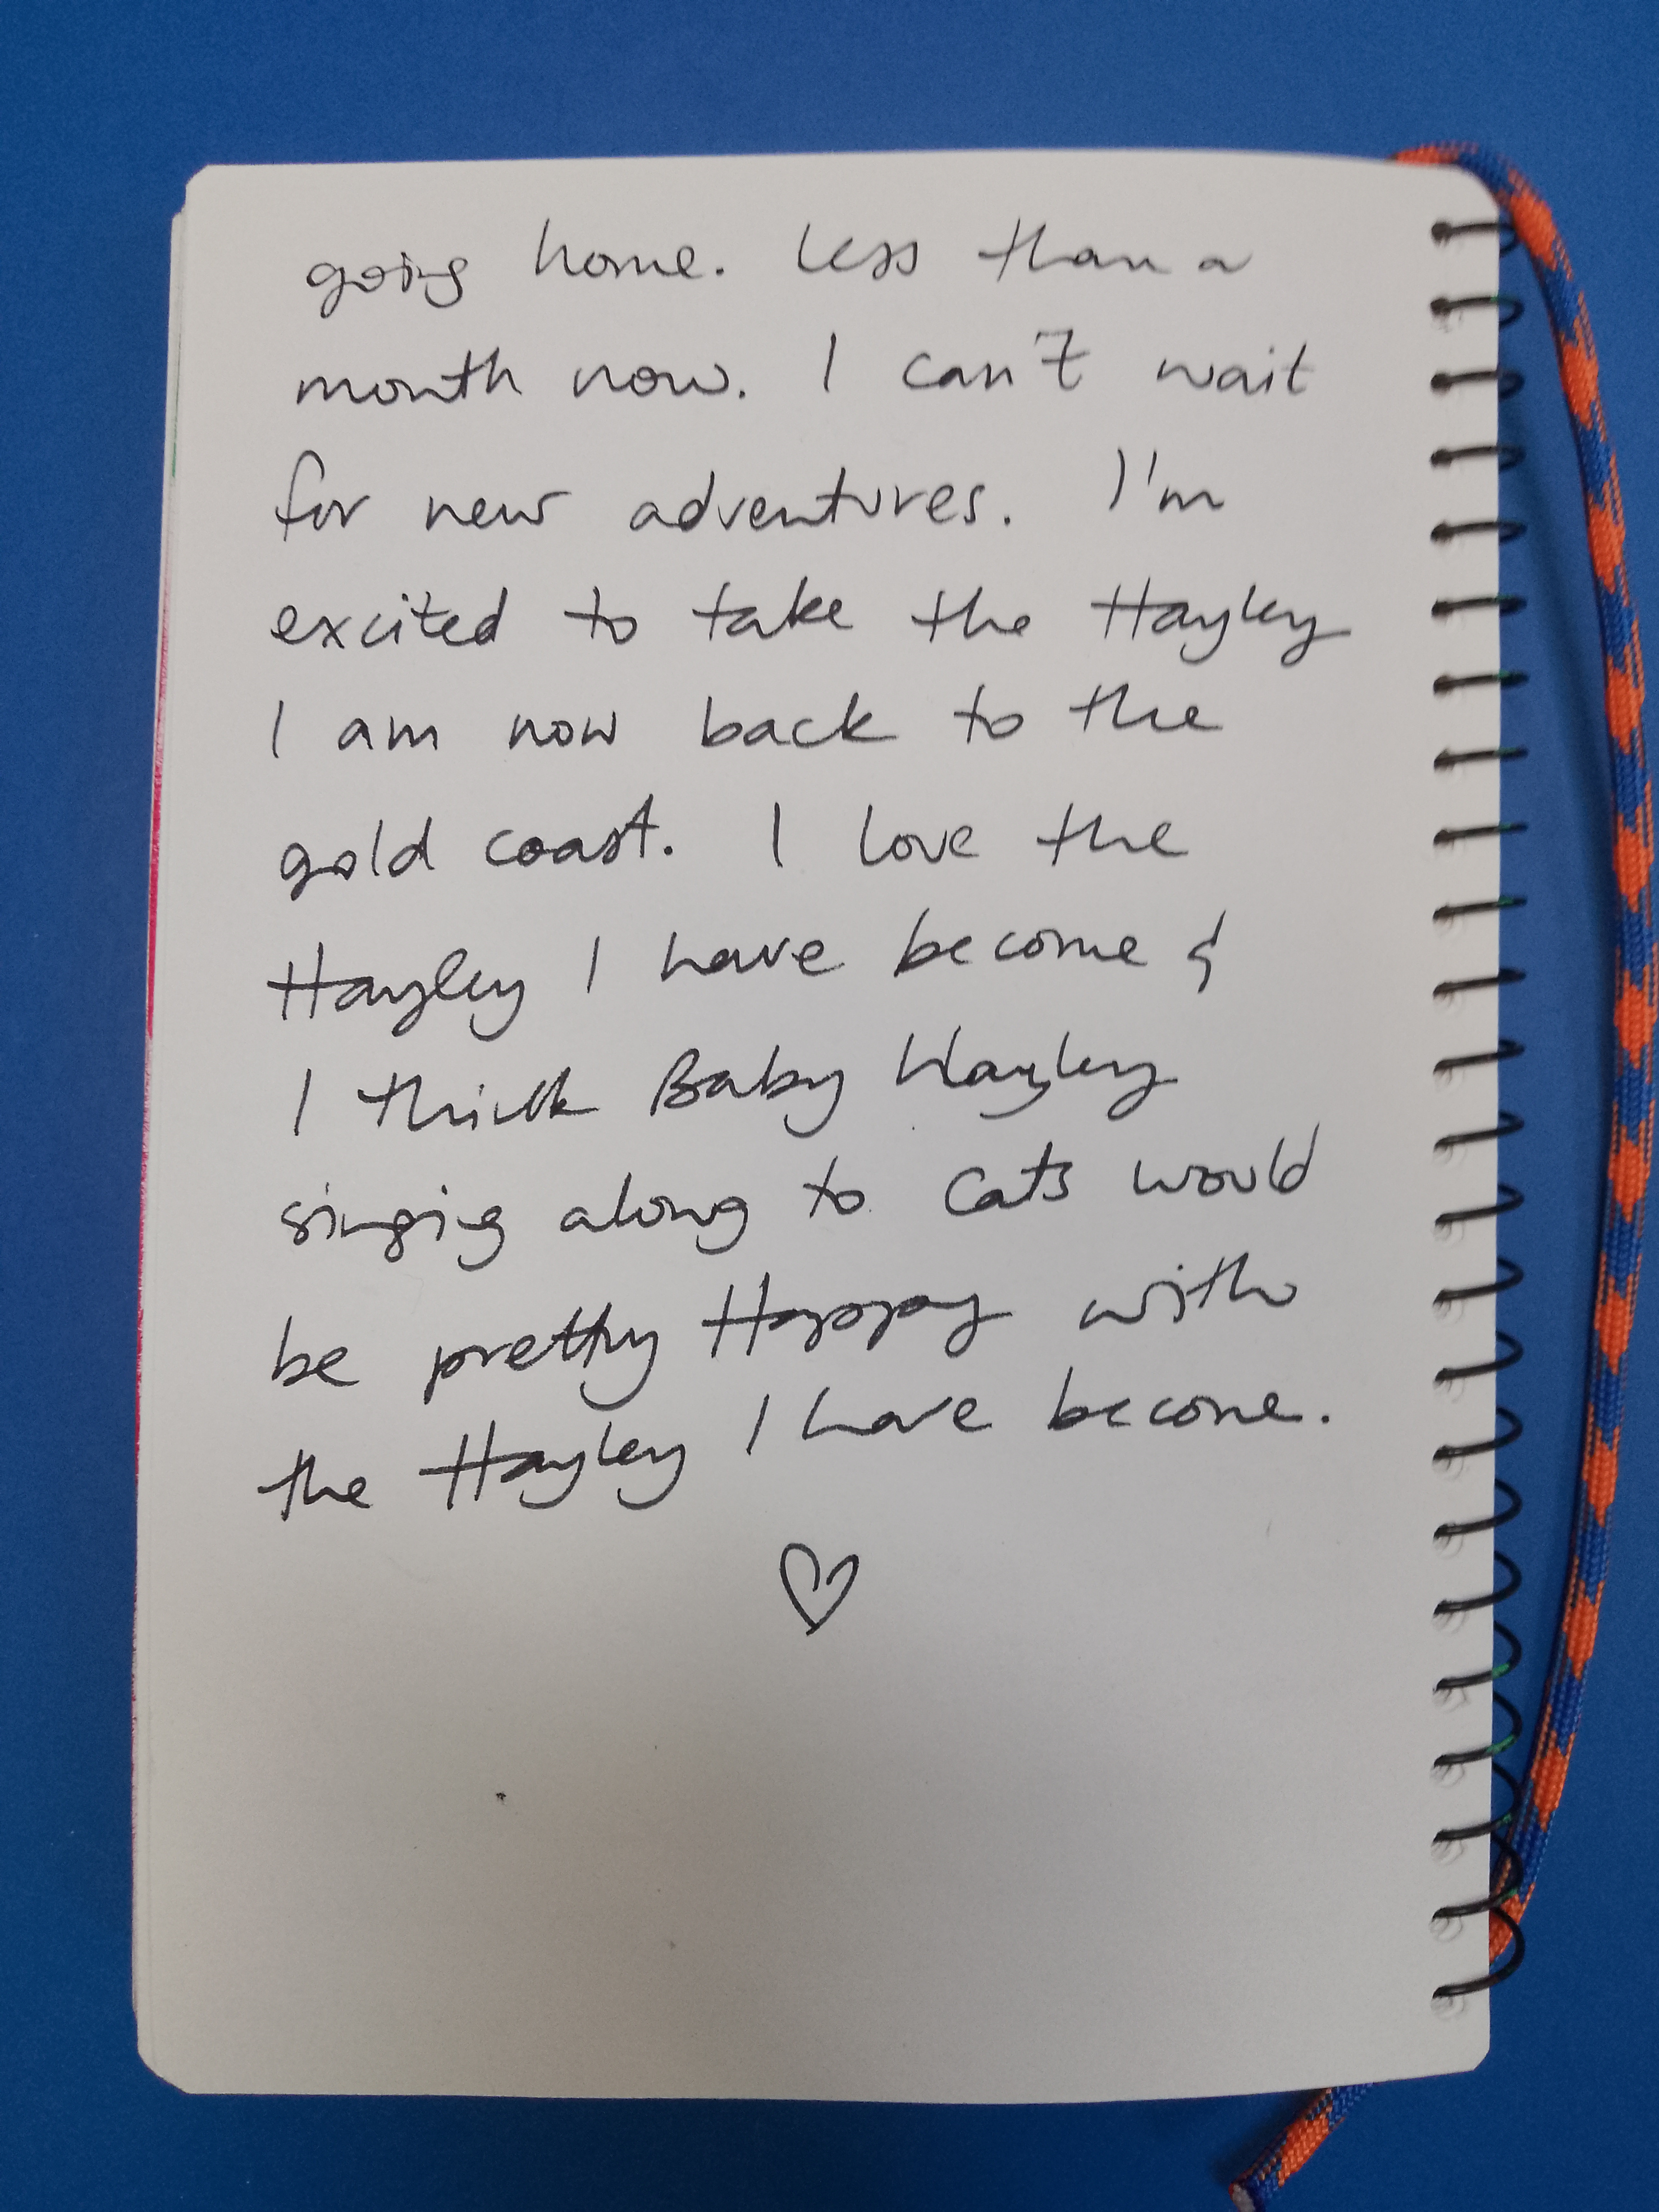 going home. Less than a
month now. I can't wait
for new adventures. I'm
excited to take the Hayley
I am now back to the
gold coast. I love the
Hayley I have become &
I think Baby Hayley
singing along to Cats would
be pretty Happy with
the Hayley I have become.